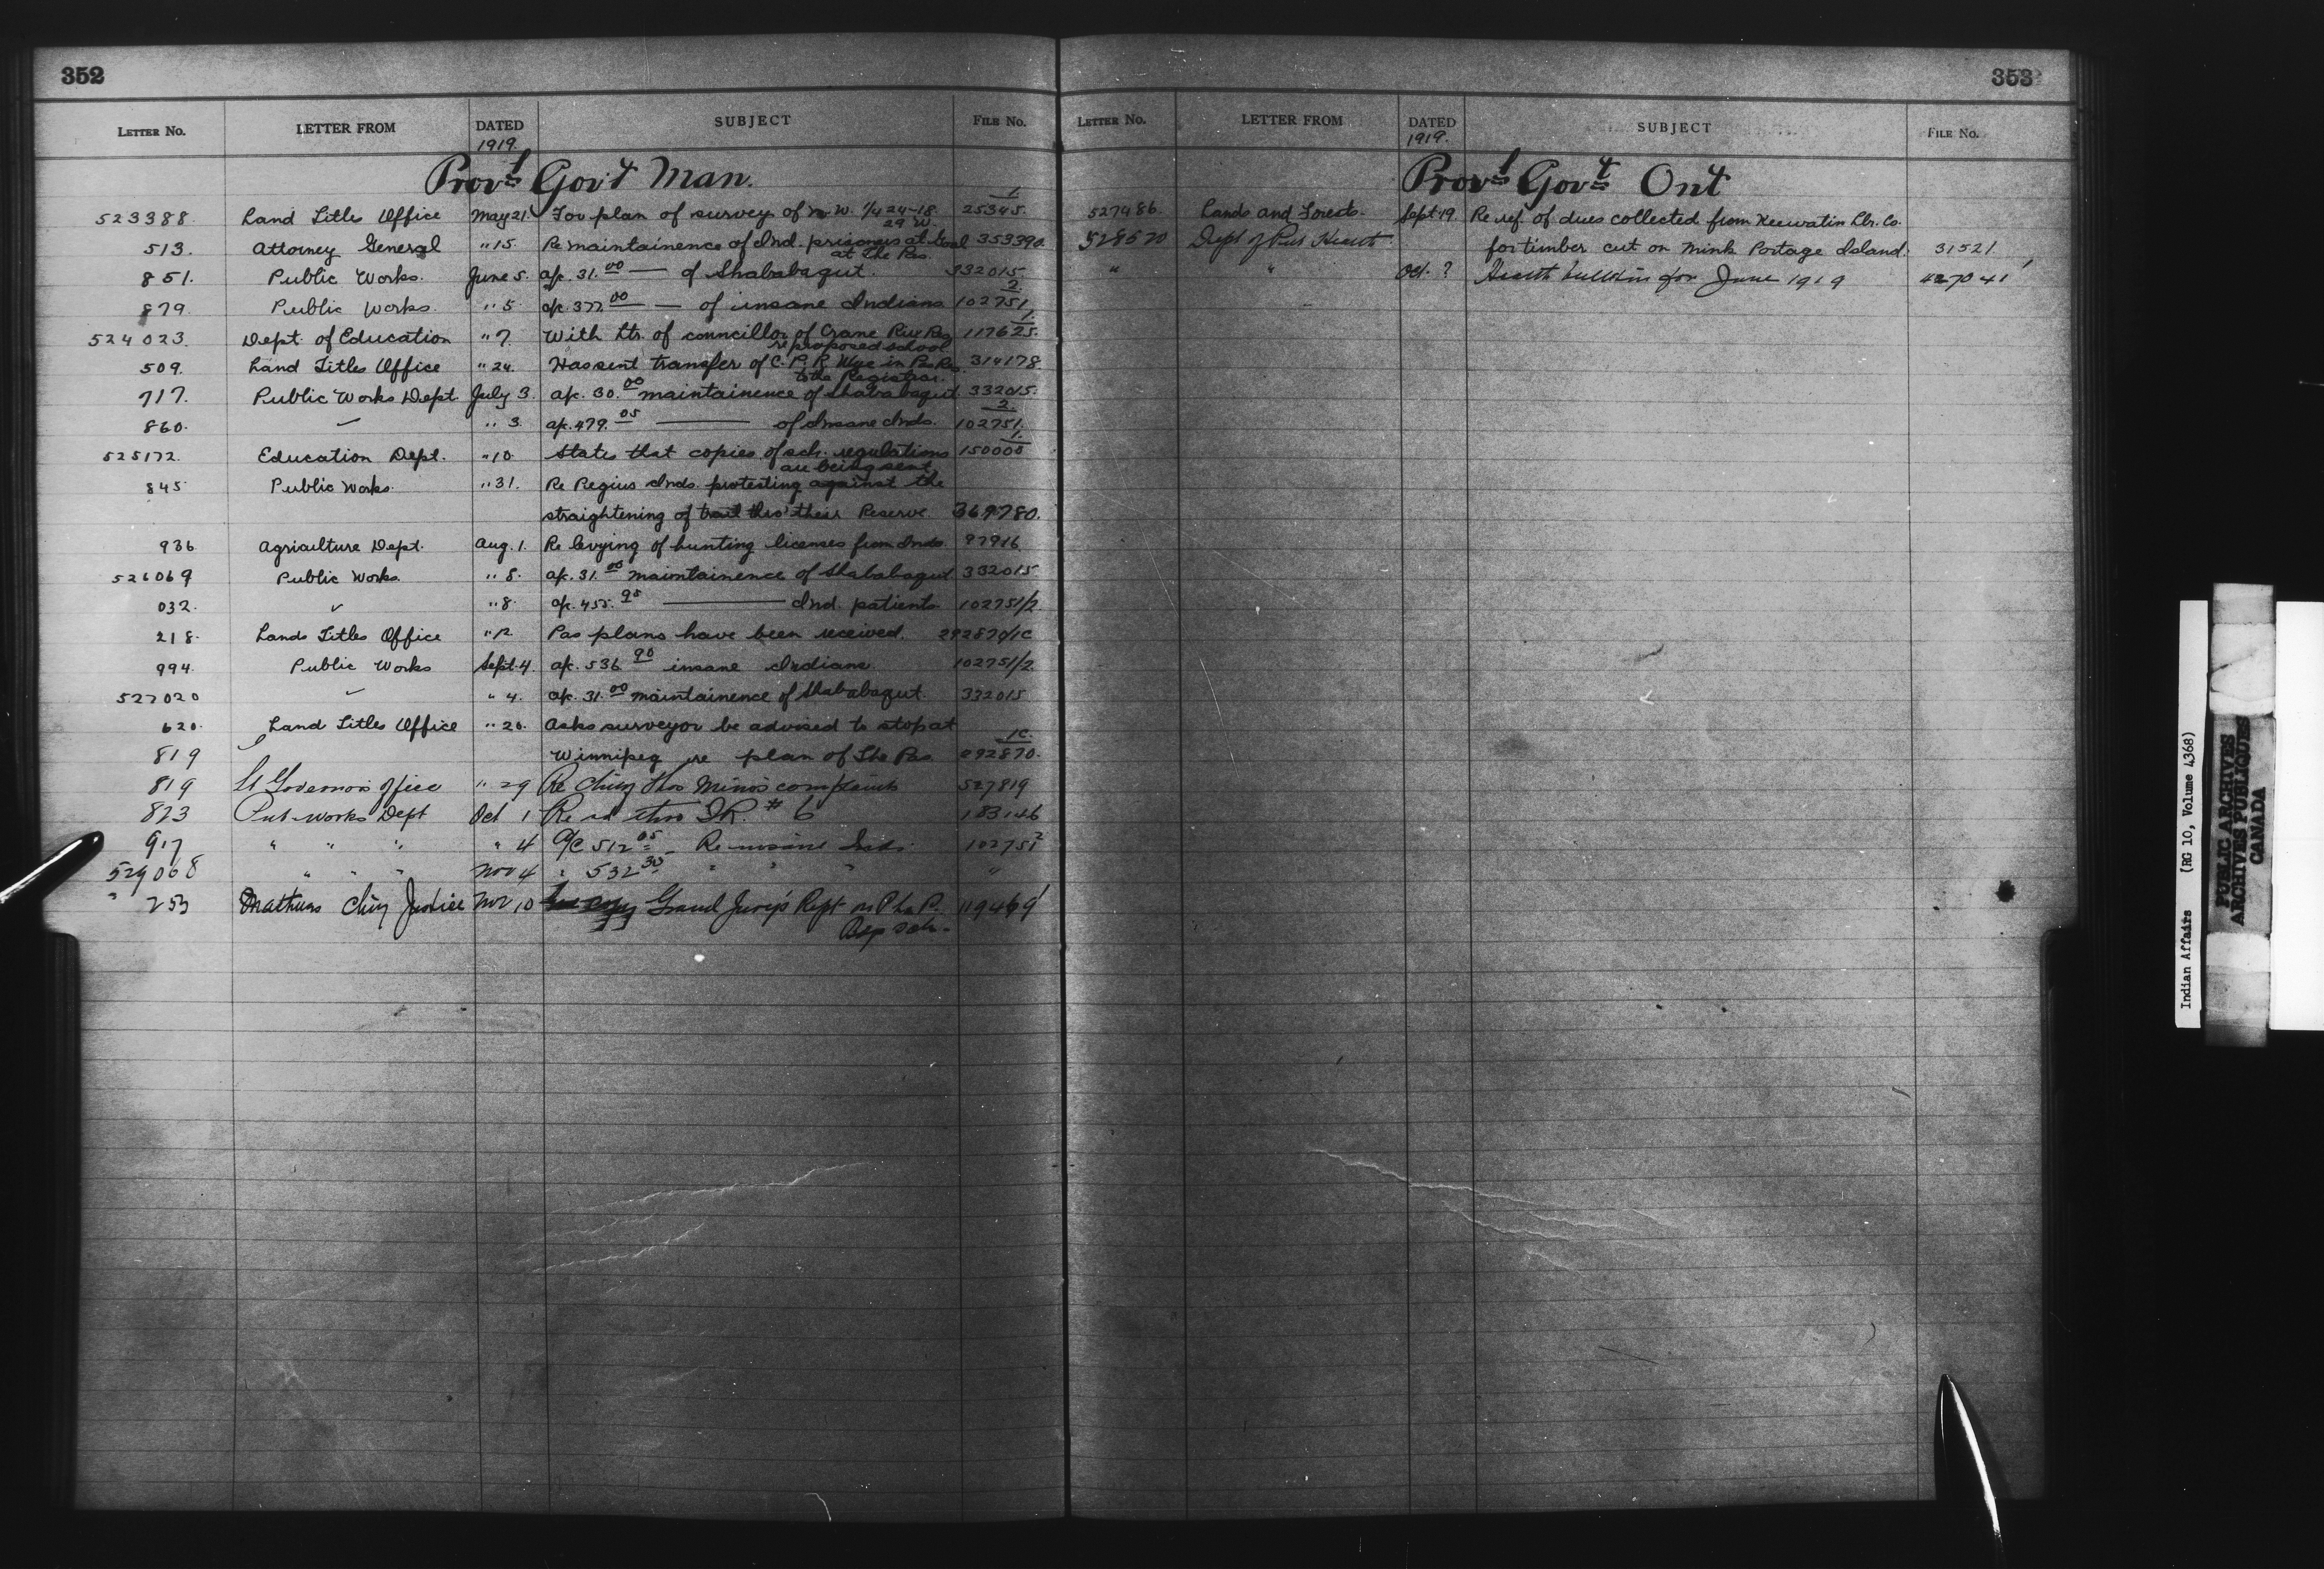 352
LETTER No. LETTER FROM DATED SUBJECT FILE No.
1919.
Provl Gov't Man.
523388. Land Titles Office May 21. For plan of survey of N.W. 1/4 24-18. 29 W. 25345. 1
513. Attorney General " 15. Re maintainence of Ind. prisoners at Goal at The Pas. 353390.
851. Public Works. June 5. a/c. 31.00 — of Shababagut. 332015.
879. Public Works. " 5. a/c. 377.00 — of insane Indians 102751. 2
524023. Dept. of Education " 7. With ltr. of councillor of Crane Riv Res re proposed school 117625. 1
509. Land Titles Office " 24. Has sent transfer of C.P.R. Wye in to the Registrar. 314178
717. Public Works Dept July 3. a/c. 30.00 maintainence of Shababagut 332015.
860. " 3. a/c. 479.05 — of Insane Inds. 102751. 2
525172. Education Dept. " 10. States that copies of sch. regulations are being sent. 150000 1
845. Public Works. " 31. Re Regius Inds. protesting against the
straightening of trail thro' their Reserve. 369780.
936 Agriculture Dept. Aug. 1. Re levying of hunting licenses from Inds. 97916
526069 Public Works. " 8. a/c. 31.00 maintainence of Shababagut 332015.
032. " 8. a/c. 455.95 — Ind. patients 102751/2
218. Lands Titles Office " 12 Pas plans have been received. 292870/1C
994. Public Works Sept. 4. a/c. 536.90 insane Indians. 102751/2.
527020 " 4. a/c. 31.00 maintainence of Shababagut. 332015
620. Land Titles Office " 20. Asks surveyor be advised to stop at
819 Winnipeg re plan of The Pas 292870. 1C.
819 Lt Governors Office " 29 Re Chief Thos Minos complaint 527819
823 Pub. Works Dept Oct 1 Re rd thro I.R. # 6 183146
917 " " " " 4 a/c 512.05 - Re insane Inds. 102751 2
529068 " " " Nov 4 " 532.30 " " " "
" 253 Mathers Chief Justice Nov 10 Grand Jury's Rept on P la P. 119469 1
Sch.
353
LETTER No. LETTER FROM DATED SUBJECT FILE No.
1919.
Provl Govt Ont
527486. Lands and Forests. Sept. 19. Re ref. of dues collected from Keewatin Lbr. Co.
528570 Dept of Pub Health for timber cut on Mink Portage Island. 31521
" " Oct. ? Health bulletin for June 1919 427041 1
Indian Affairs (RG 10, Volume 4368)
PUBLIC ARCHIVES
ARCHIVES PUBLIQUES
CANADA